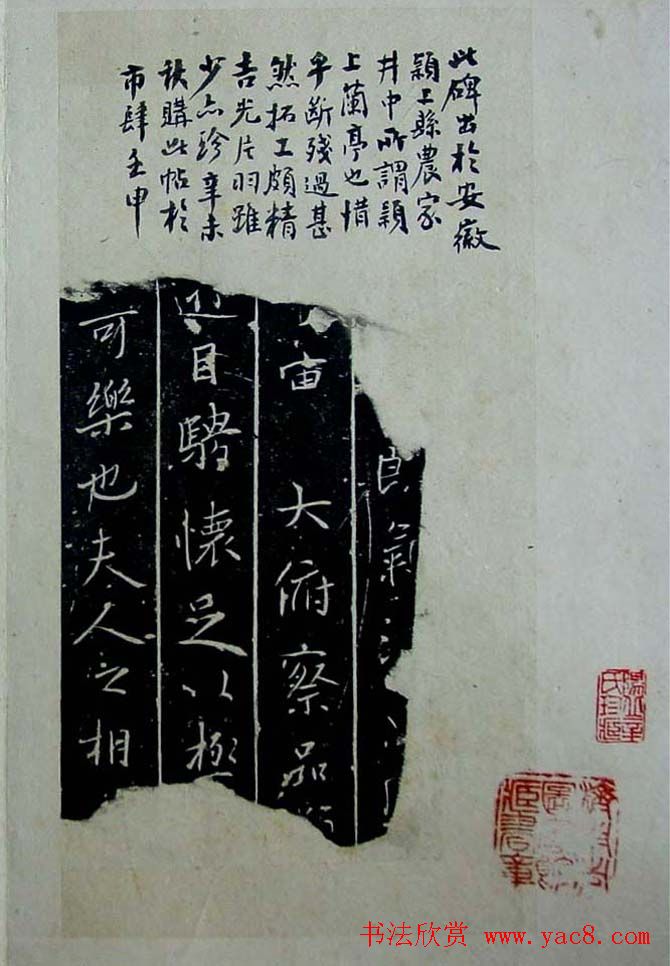 此碑出於安徽
穎上縣農家
井中所謂穎
上蘭亭也惜
乎斷殘過甚
然拓工頗精
吉光片羽雖
少亦珍辛未
秋購此帖於
市肆壬申
氣
宙 大俯察品
目騁懷足以極
可樂也夫人之相
书法欣赏 www.yac8.com